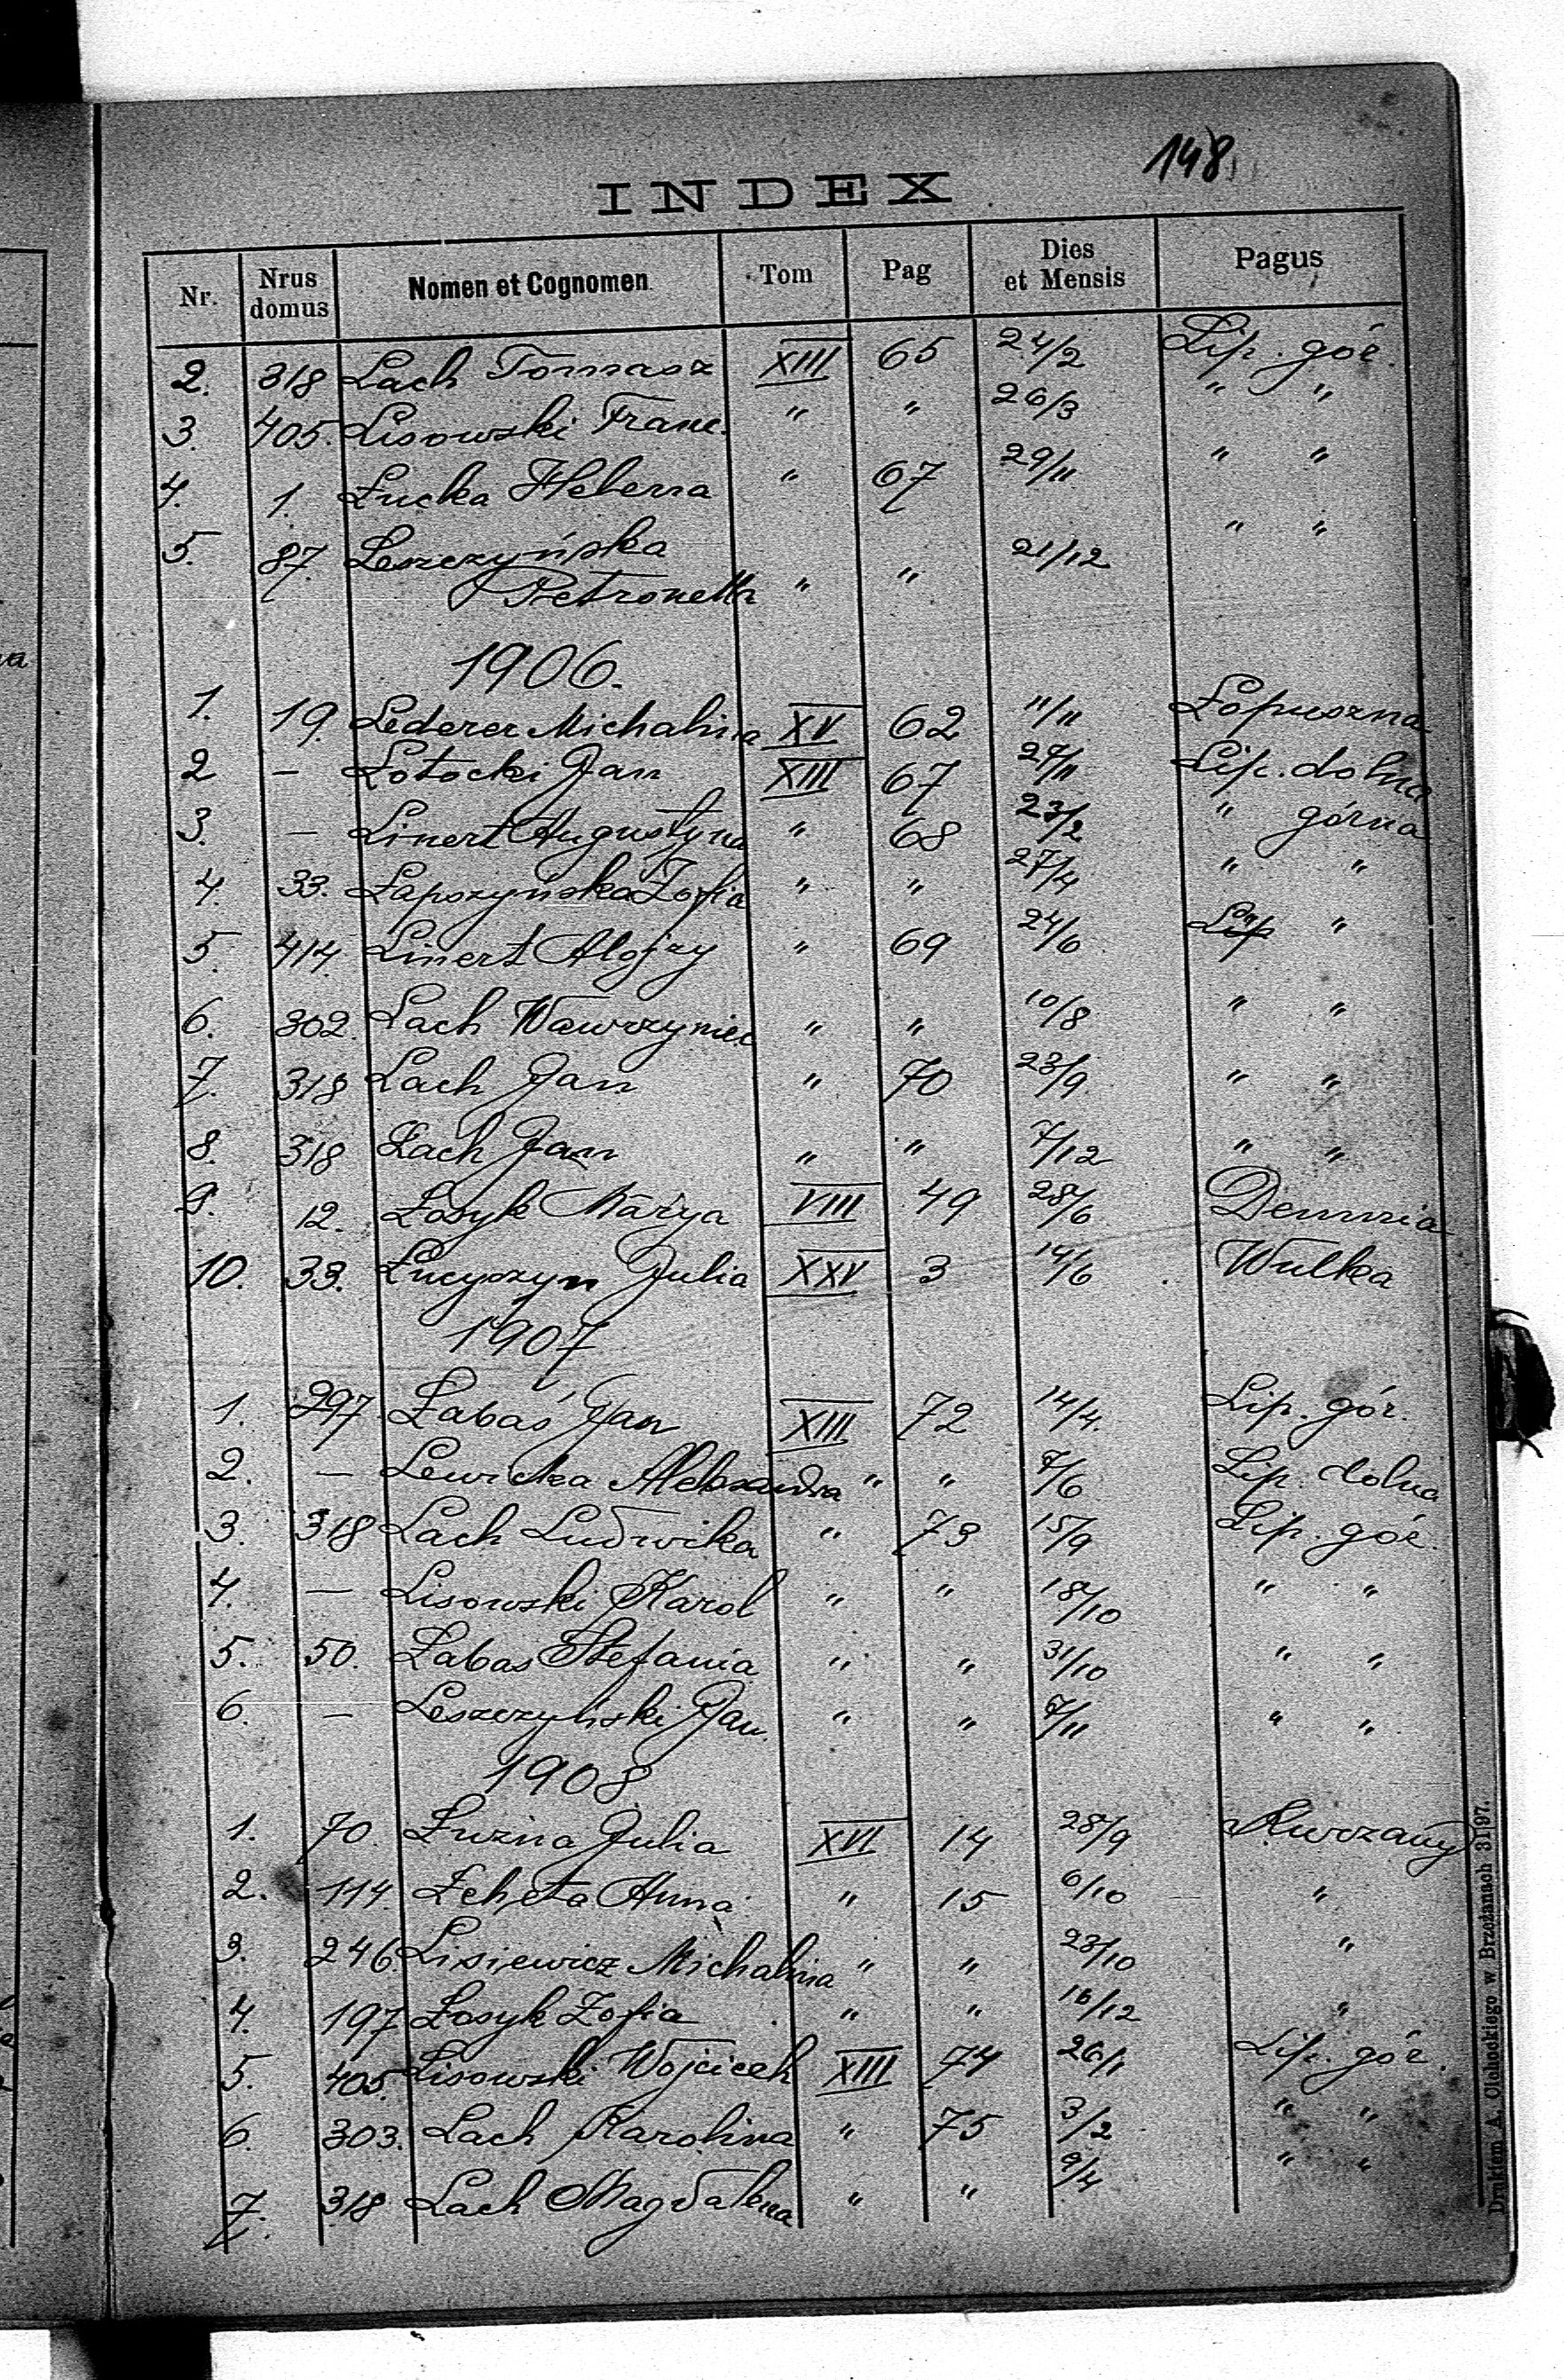 148
INDEX
Nr. Nrus domus Nomen et Cognomen Tom Pag Dies et Mensis Pagus
2. 318 Lach Tomasz XIII 65 24/2 Lip. gór.
3. 405. Lisowski Franc. " " 26/3 " "
4. 1. Łucka Helena " 67 29/11 " "
5. 87. Leszczyńska 21/12 " "
Petronella " "
1906.
1. 19. Lederer Michalina XV 62 11/11 Łopuszna
2 – Łotocki Jan XIII 67 27/11 Lip. dolna
3. – Linert Augustyna " 68 23/2 " górna
4. 33. Łapszyńska Zofia " " 27/4 " "
5. 414. Linert Alojzy " 69 24/6 "
6. 302. Lach Wawrzyniec " " 10/8 " "
7. 318 Lach Jan " 70 23/9 " "
8. 318 Lach Jan " " 7/12 " "
9. 12. Łosyk Marya VIII 49 28/6 Demnia
10. 33. Łucyszyn Julia XXV 3 14/6 Wulka
1907
1. 297 Łabaś Jan XIII 72 14/4. Lip. gór.
2. – Lewicka Aleksandra " " 7/6 Lip. dolna
3. 318 Lach Ludwika " 73 15/9 Lip. gór.
4. – Lisowski Karol " " 18/10 " "
5. 50. Łabas Stefania " " 31/10 " "
6. – Leszczyński Jan. " " 7/11 " "
1908
1. 70. Łuzna Julia XVI 14 28/9
2. 114. Anna " 15 6/10 "
3. 246 Lisiewicz Michalina " " 23/10 "
4. 197 Łosyk Zofia " " 16/12 "
5. 405. Lisowski Wojciech XIII 74 26/1 Lip. gór.
6. 303. Lach Karolina " 75 3/2 " "
7. 318 Lach Magdalena " " 9/4 " "
Drukiem A. Olchockiego w Brzeżanach 31|97.